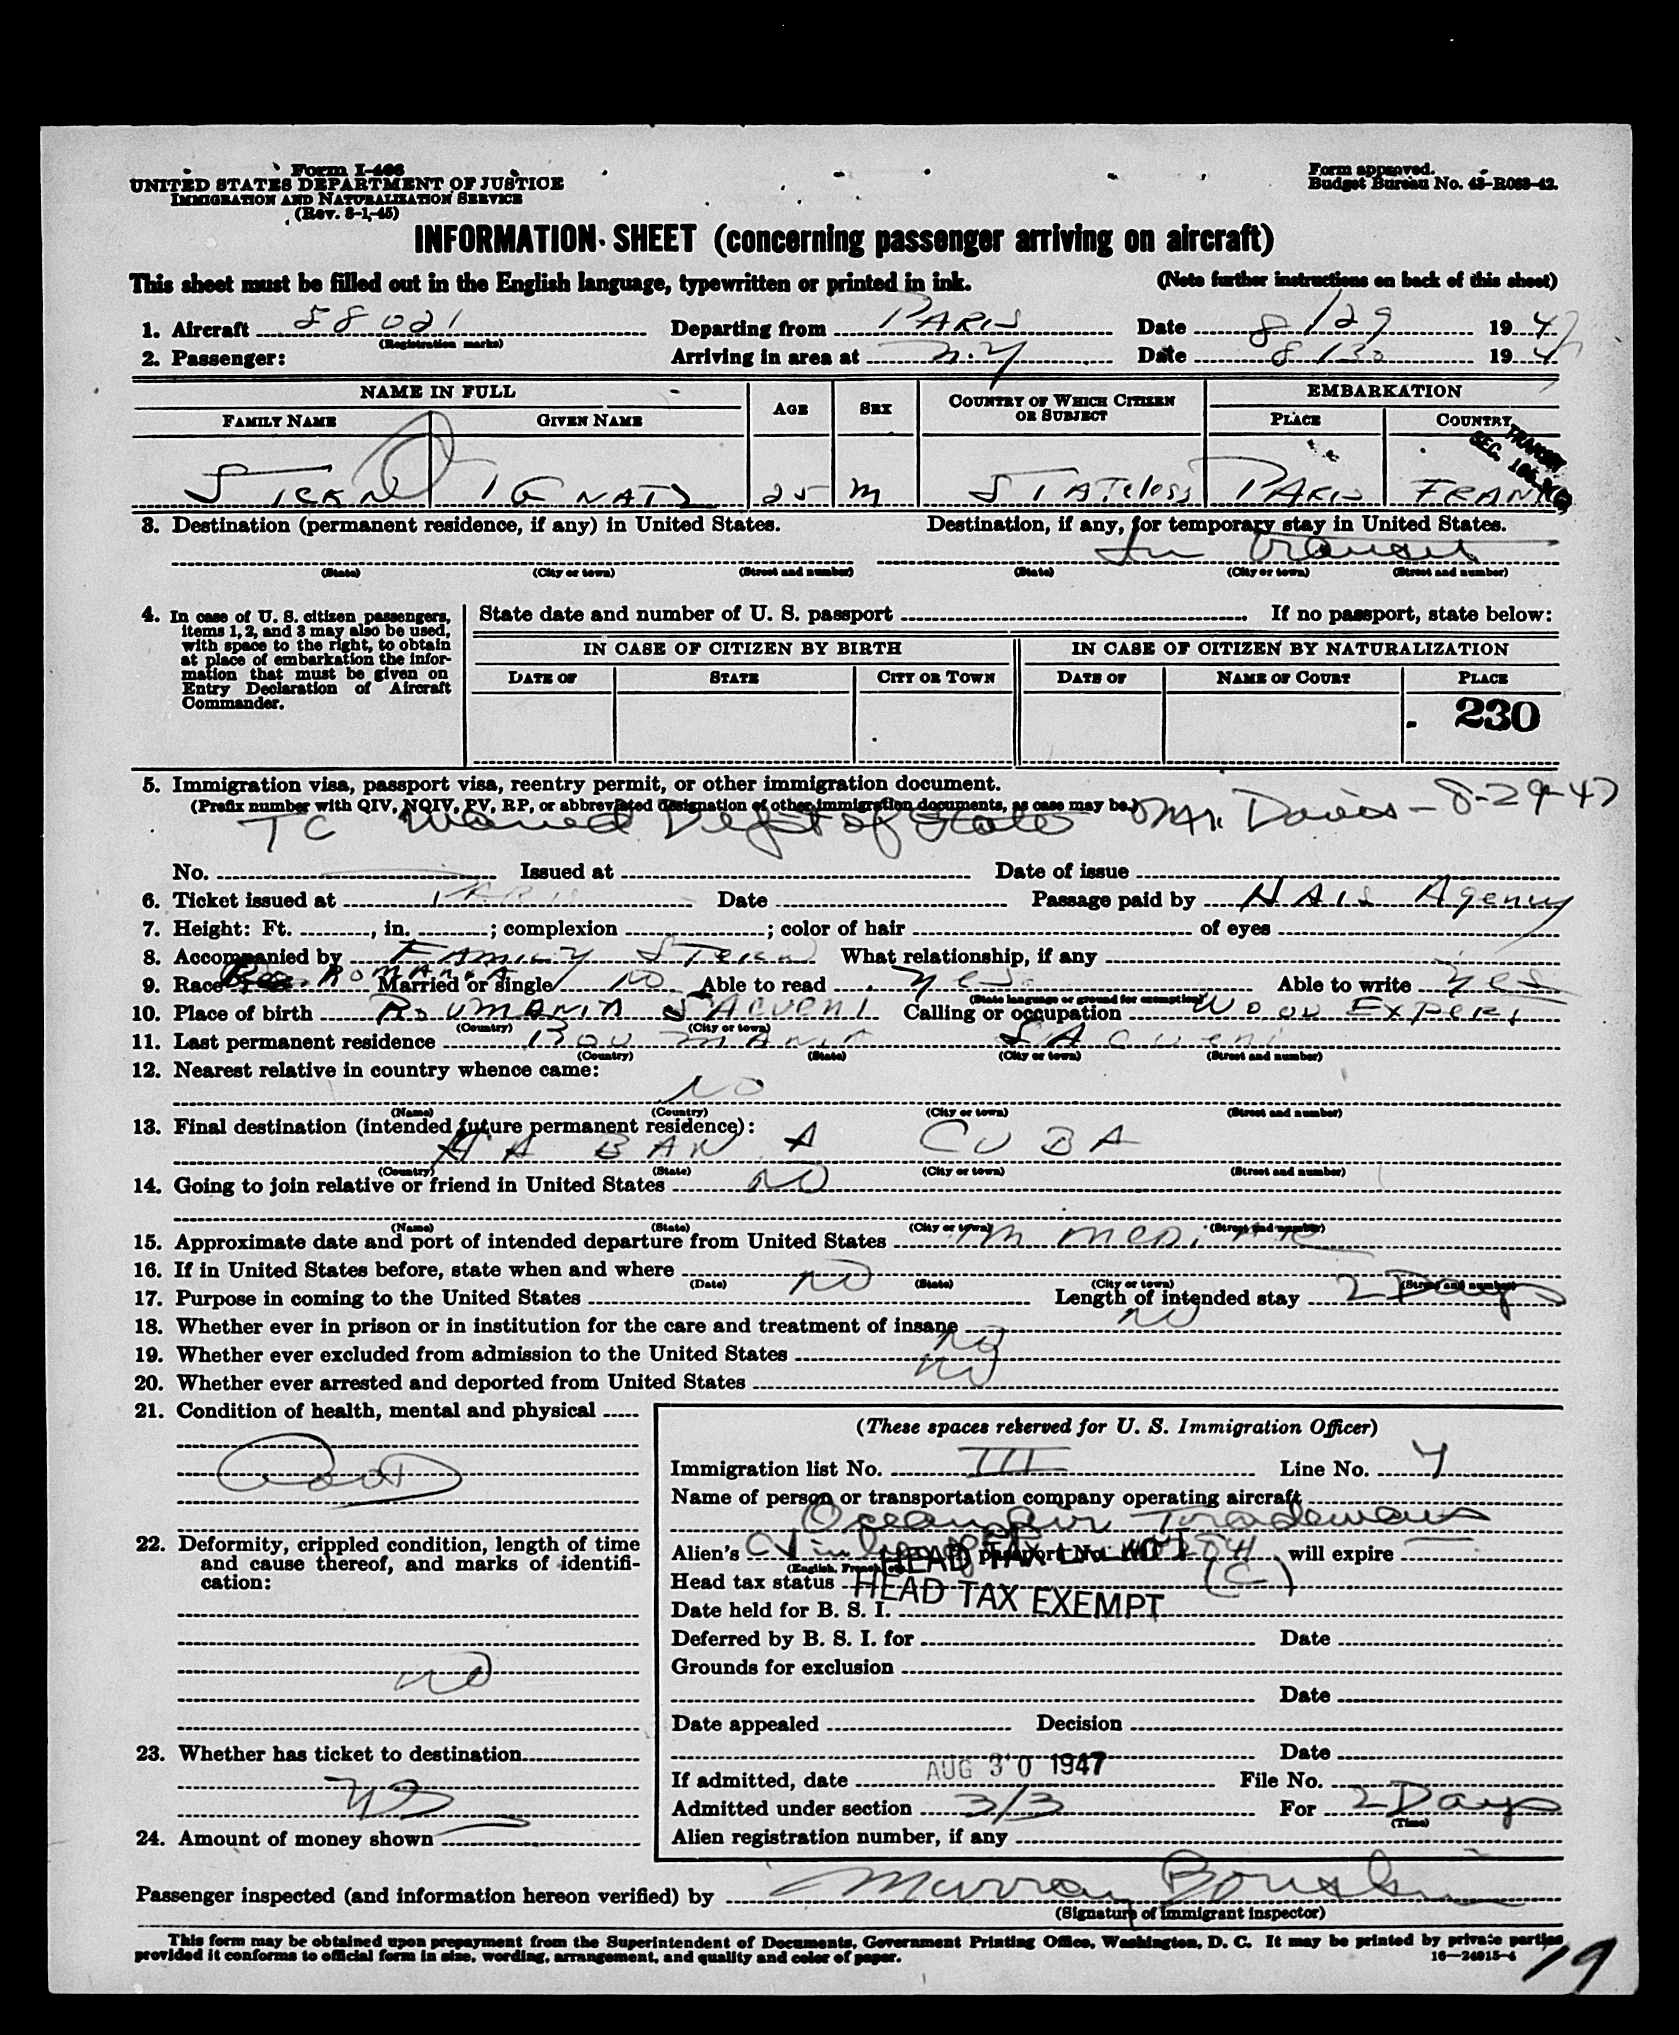 Form I-466
UNITED STATES DEPARTMENT OF JUSTICE
IMMIGRATION AND NATURALIZATION SERVICE
(Rev. 8-1-45)
Form approved.
Budget Bureau No. 43-R063-42.
INFORMATION SHEET (concerning passenger arriving on aircraft)
This sheet must be filled out in the English language, typewritten or printed in ink. (Note further instructions on back of this sheet)
1. Aircraft 58021 Departing from PARIS Date 8/29 1947
(Registration marks)
2. Passenger: Arriving in area at N.Y Date 8/30 1947
NAME IN FULL AGE SEX COUNTRY OF WHICH CITIZEN OR SUBJECT EMBARKATION
FAMILY NAME GIVEN NAME PLACE COUNTRY
TRANSIT
STERN IGNATZ 25 M STATeless PARIS FRANCE
3. Destination (permanent residence, if any) in United States. Destination, if any, for temporary stay in United States.
In transit
(State) (City or town) (Street and number) (State) (City or town) (Street and number)
4. In case of U. S. citizen passengers, items 1, 2, and 3 may also be used, with space to the right, to obtain at place of embarkation the information that must be given on Entry Declaration of Aircraft Commander.
State date and number of U. S. passport If no passport, state below:
IN CASE OF CITIZEN BY BIRTH IN CASE OF CITIZEN BY NATURALIZATION
DATE OF STATE CITY OR TOWN DATE OF NAME OF COURT PLACE
230
5. Immigration visa, passport visa, reentry permit, or other immigration document.
(Prefix number with QIV, NQIV, PV, RP, or abbreviated designation of other immigration documents, as case may be.)
TC Waived Dept of State Mr. Davis - 8-29-47
No. Issued at Date of issue
6. Ticket issued at PARIS Date Passage paid by HAIS Agency
7. Height: Ft. , in. ; complexion ; color of hair of eyes
8. Accompanied by FAMILY STERN What relationship, if any
9. Race ROMANIA Married or single NO Able to read yes Able to write yes
(State language or ground for exemption)
10. Place of birth ROUMANIA SACUENI Calling or occupation WOOD EXPERT
(Country) (City or town)
11. Last permanent residence ROUMANIA SACUENI
(Country) (State) (City or town) (Street and number)
12. Nearest relative in country whence came:
NO
(Name) (Country) (City or town) (Street and number)
13. Final destination (intended future permanent residence):
HABANA CUBA
(Country) (State) (City or town) (Street and number)
14. Going to join relative or friend in United States NO
(Name) (State) (City or town) (Street and number)
15. Approximate date and port of intended departure from United States
16. If in United States before, state when and where NO
(Date) (State) (City or town) (Street and number)
17. Purpose in coming to the United States Length of intended stay 2 Days
18. Whether ever in prison or in institution for the care and treatment of insane NO
19. Whether ever excluded from admission to the United States NO
20. Whether ever arrested and deported from United States NO
21. Condition of health, mental and physical
Good
22. Deformity, crippled condition, length of time and cause thereof, and marks of identification:
NO
23. Whether has ticket to destination
yes
24. Amount of money shown
(These spaces reserved for U. S. Immigration Officer)
Immigration list No. III Line No. 7
Name of person or transportation company operating aircraft
Ocean Air Tradeways
Alien's passport No. will expire
HEAD TAX
Head tax status (C)
HEAD TAX EXEMPT
Date held for B. S. I.
Deferred by B. S. I. for Date
Grounds for exclusion
Date
Date appealed Decision
Date
If admitted, date AUG 30 1947 File No.
Admitted under section 3/3 For 2 Days
(Time)
Alien registration number, if any
Passenger inspected (and information hereon verified) by Murray
(Signature of immigrant inspector)
This form may be obtained upon prepayment from the Superintendent of Documents, Government Printing Office, Washington, D. C. It may be printed by private parties
provided it conforms to official form in size, wording, arrangement, and quality and color of paper. 16—24915-4
19